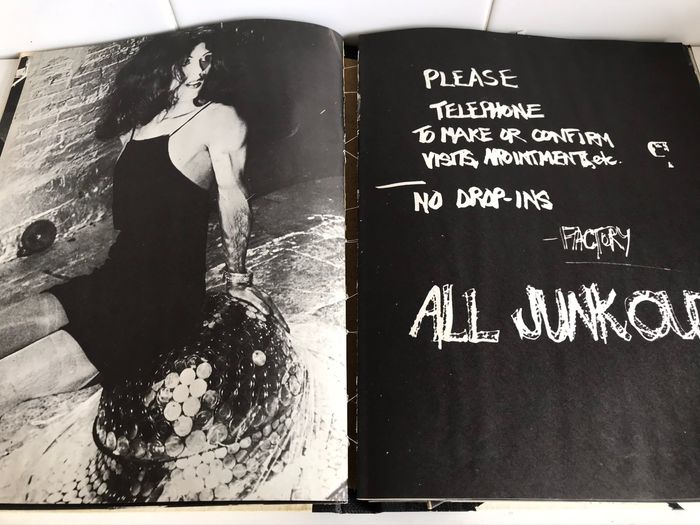 PLEASE
TELEPHONE
TO MAKE OR CONFIRM
VISITS, APOINTMENTS, etc.
NO DROP-INS
-FACTORY
ALL JUNK OU